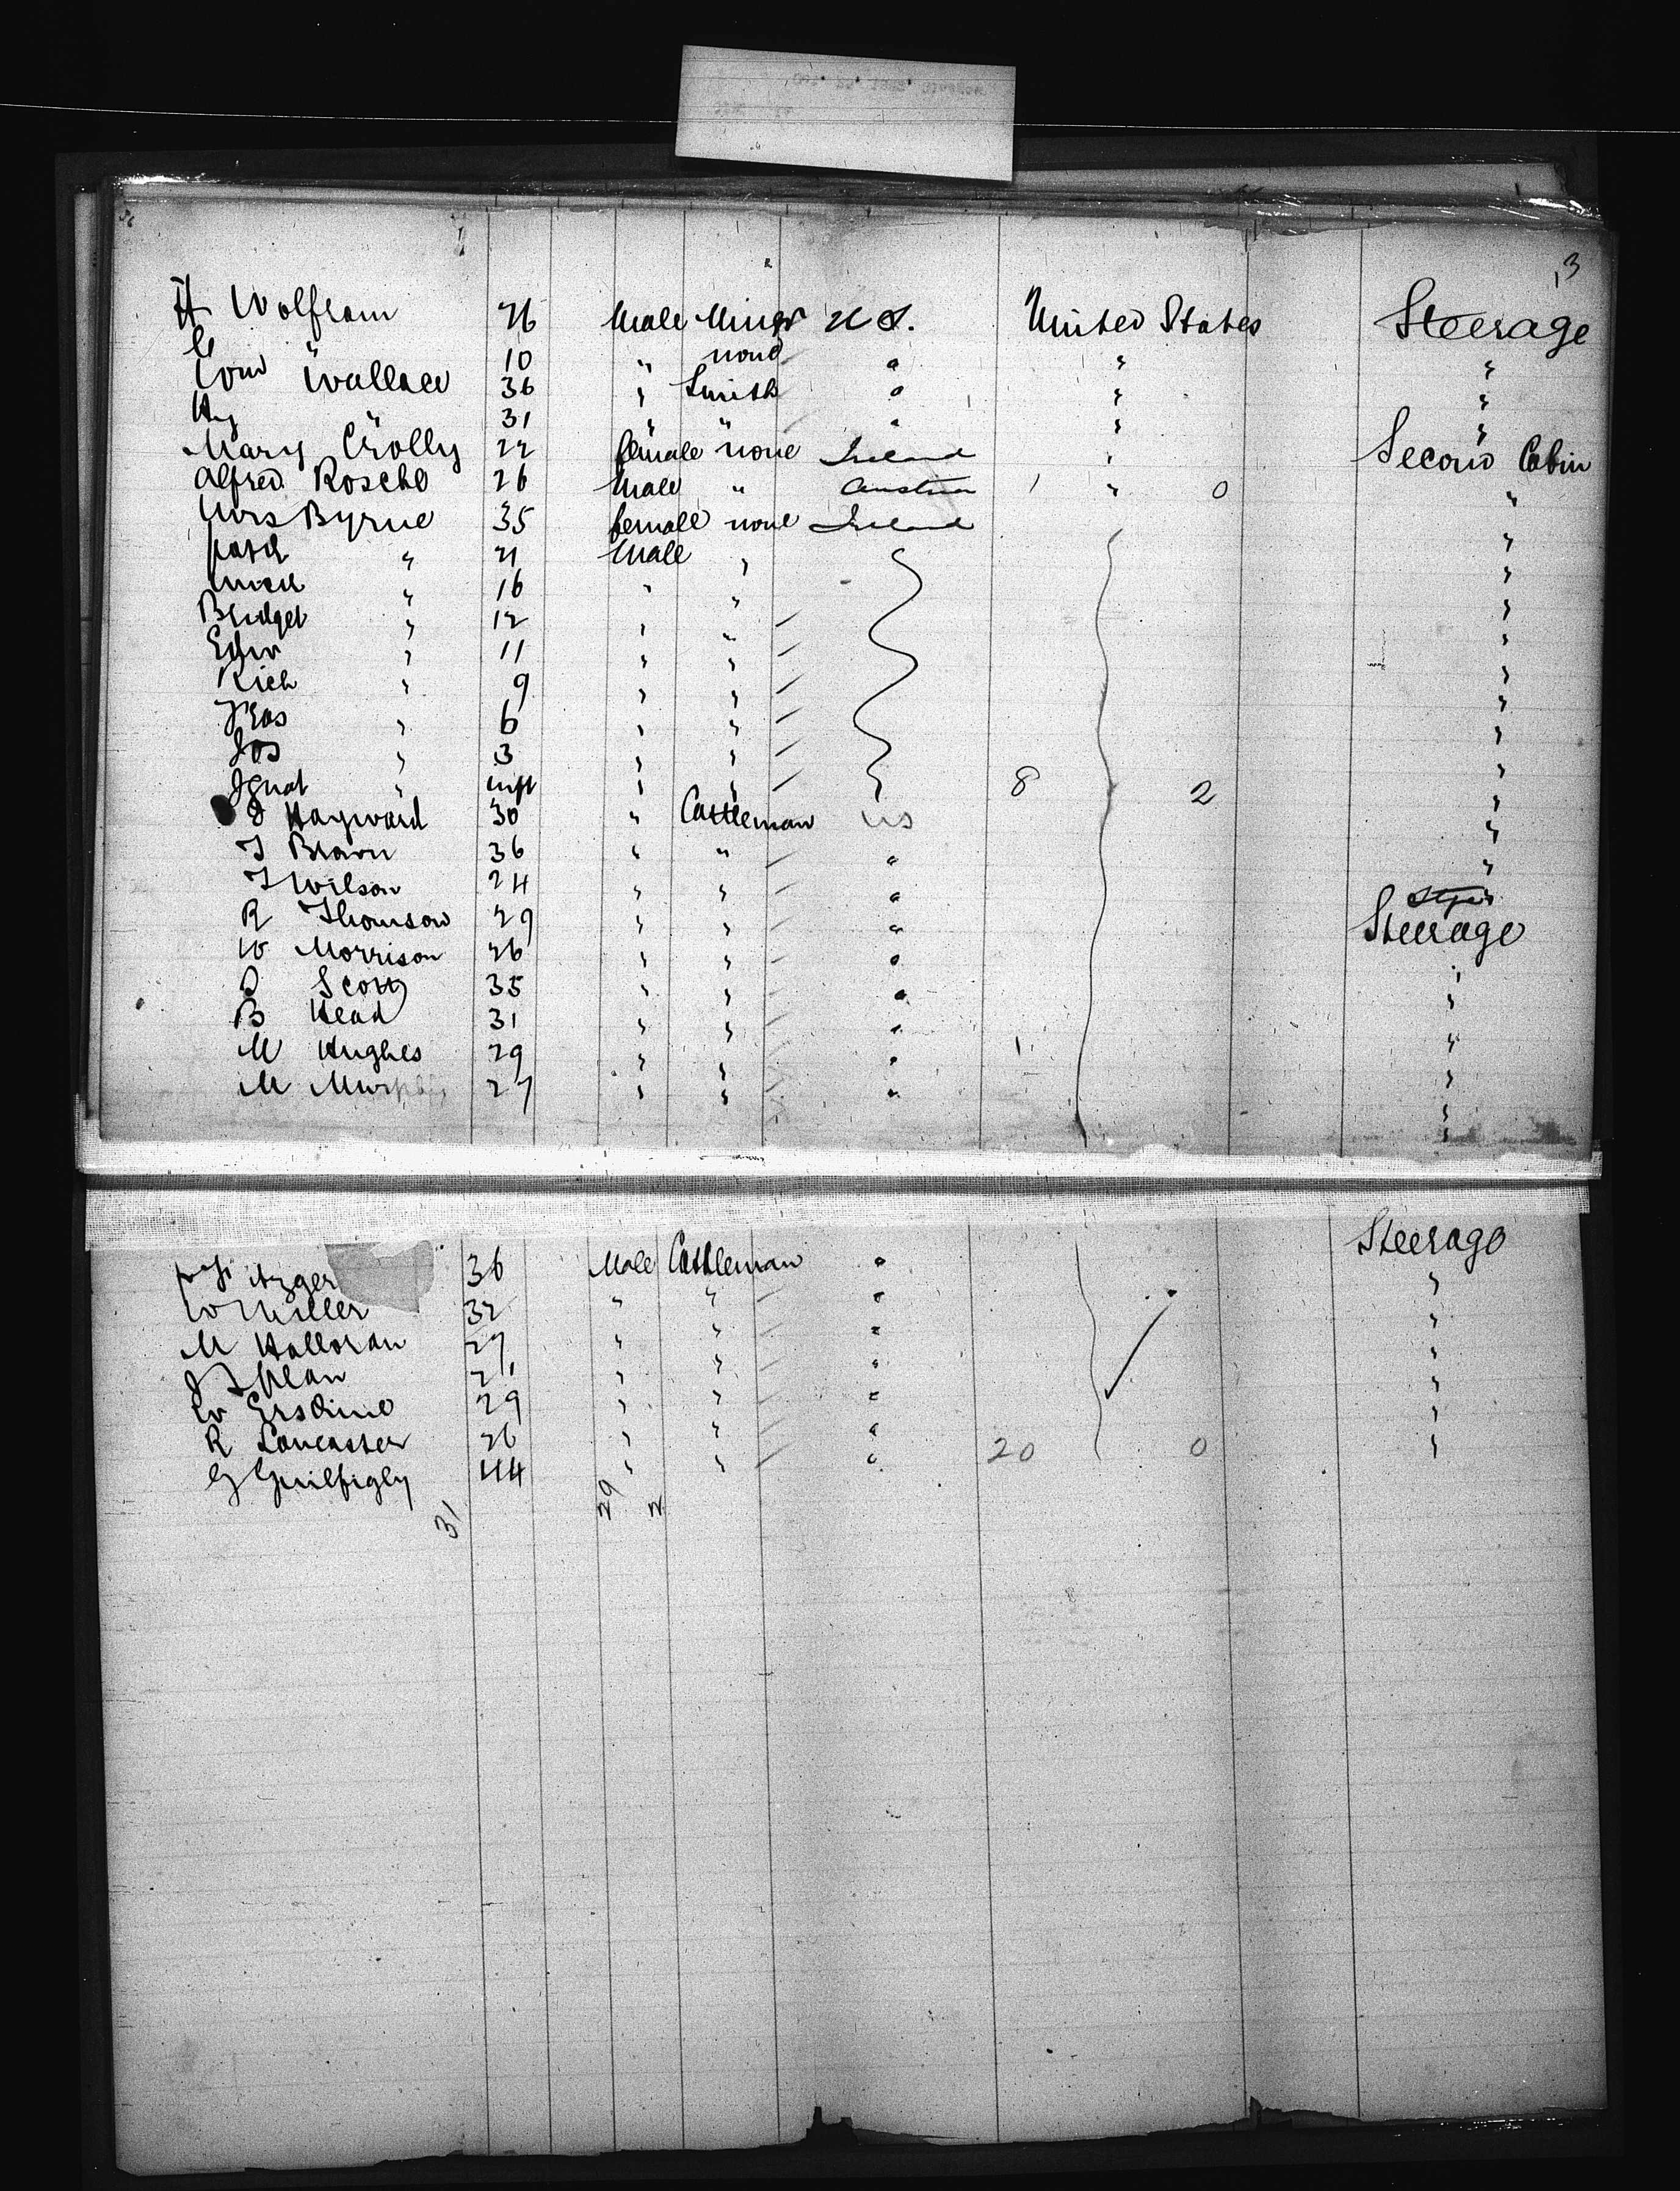 13
H Wolfram 26 Male Miner U S. United States Steerage
G " 10 " none " " "
Tom Wallace 36 " Smith " " "
Hy " 31 " " " " "
Mary Crolly 22 female none Ireland " Second Cabin
Alfred Rosche 26 Male " Austria 1 " 0 "
Mrs Byrne 35 female none Ireland "
" 21 Male " "
Mich " 16 " " "
Bridget " 12 " " "
Edw " 11 " " "
Rich " 9 " " "
Thos " 6 " " "
Jos " 3 " " "
Ignat " inft " " 8 2 "
Hayward 30 " Cattleman US "
T Brown 36 " " " "
T Wilson 24 " " "
R Thomson 29 " " " Steerage
W Morrison 26 " " " "
D Scott 35 " " " "
B Head 31 " " " "
M Hughes 29 " " " "
M Murphy 27 " " " "
Steerage
36 Male Cattleman " "
W Miller 32 " " " "
M Halloran 27 " " " "
21 " " " "
W Erskine 29 " " " "
R Lancaster 26 " " " 20 0 "
G Guilfigly 44 " " "
31 29 2